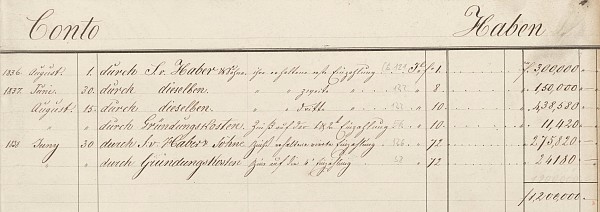 Conto Haben
1836 August. 1. durch S. v. Haber & Söhne. ihre erhaltene erste Einzahlung f 1. f 300,000 –
1837. Juni. 30. durch dieselben. " " zweite " " 8 " 150,000 –
August. 15. durch dieselben. " " dritte " " 10. " 438,580 –
" " durch Gründungskosten. Zinß auf der 1 & 2 Einzahlung " 10 " 11,420 –
1838 Juny 30 durch S. v. Haber & Söhne Einzahlung " 72 " 275,820 –
" " durch Gründungskosten Zins auf die Einzahlung " 72 " 24180 –
f 1200,000. –